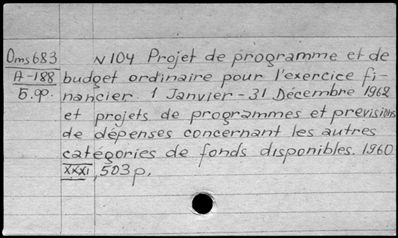 Oms683 N 104 Projet de programme et de
A-188 budget ordinaire pour l'exercice fi-
Б.ф. nancier. 1 Janvier-31 Décembre 1962
et projets de programmes et previsions
de dépenses concernant les autres
catégories de fonds disponibles. 1960
XXXI, 503 p.